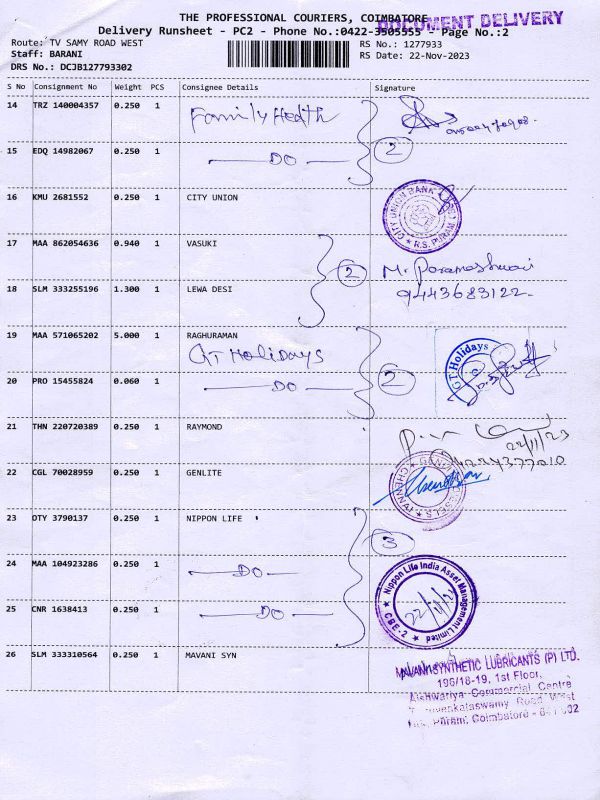 THE PROFESSIONAL COURIERS, COIMBATORE
DOCUMENT DELIVERY
Delivery Runsheet - PC2 - Phone No.:0422-3505555 - Page No.:2
Route: TV SAMY ROAD WEST
RS No.: 1277933
Staff: BARANI
RS Date: 22-Nov-2023
DRS No.: DCJB127793302
S No Consignment No Weight PCS Consignee Details Signature
14 TRZ 140004357 0.250 1 Family Health
15 EDQ 14982067 0.250 1 DO 2
16 KMU 2681552 0.250 1 CITY UNION
CITY UNION BANK
R.S. PURAM
17 MAA 862054636 0.940 1 VASUKI
2 M. Parameshwari
18 SLM 333255196 1.300 1 LEWA DESI 9443683122
19 MAA 571065202 5.000 1 RAGHURAMAN
GT Holidays
G.T Holidays
20 PRO 15455824 0.060 1 DO 2
21 THN 220720389 0.250 1 RAYMOND
22/11/23
22 CGL 70028959 0.250 1 GENLITE
CHENNAI
23 OTY 3790137 0.250 1 NIPPON LIFE
3
24 MAA 104923286 0.250 1 DO
Nippon Life India Asset Management Limited
CBE-2
25 CNR 1638413 0.250 1 DO
26 SLM 333310564 0.250 1 MAVANI SYN
MAVANI SYNTHETIC LUBRICANTS (P) LTD.
196/18-19, 1st Floor,
Aishwariya Commercial Centre
Road West
Puram, Coimbatore